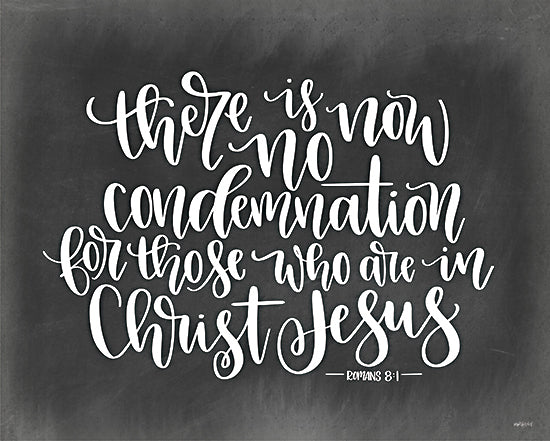 there is now
no
condemnation
for those who are in
Christ Jesus
ROMANS 8:1